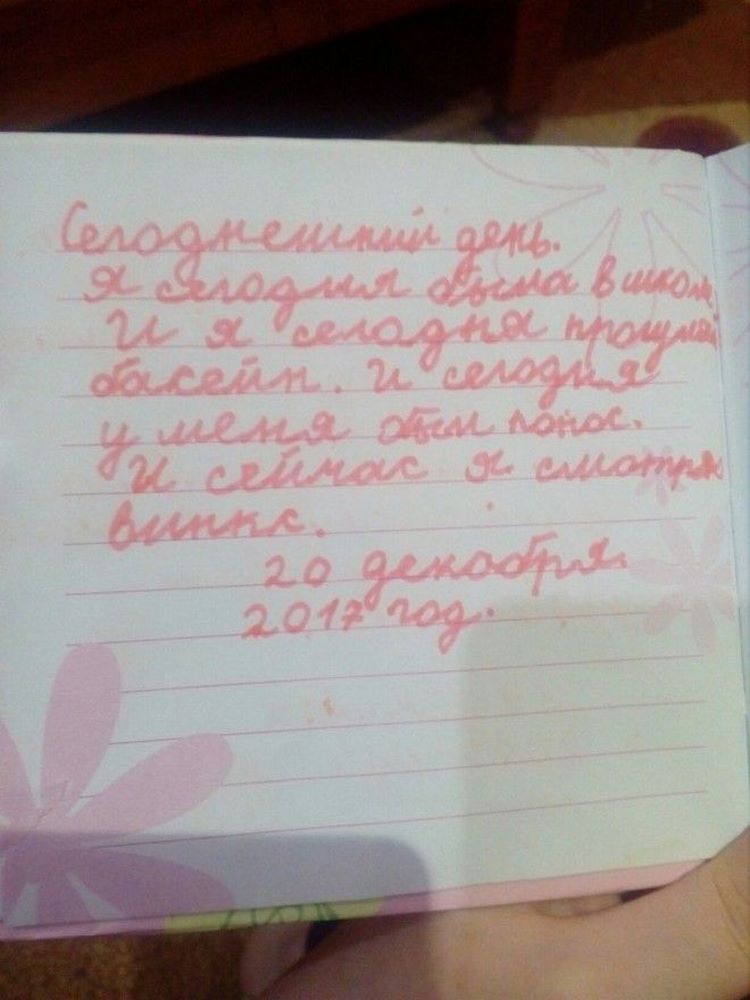 Сегоднешний день.
Я сегодня была в школе
И я сегодня прогуляла
басейн. И сегодня
у меня был понос.
И сейчас я смотрю
винкс.
20 декабря.
2017 год.